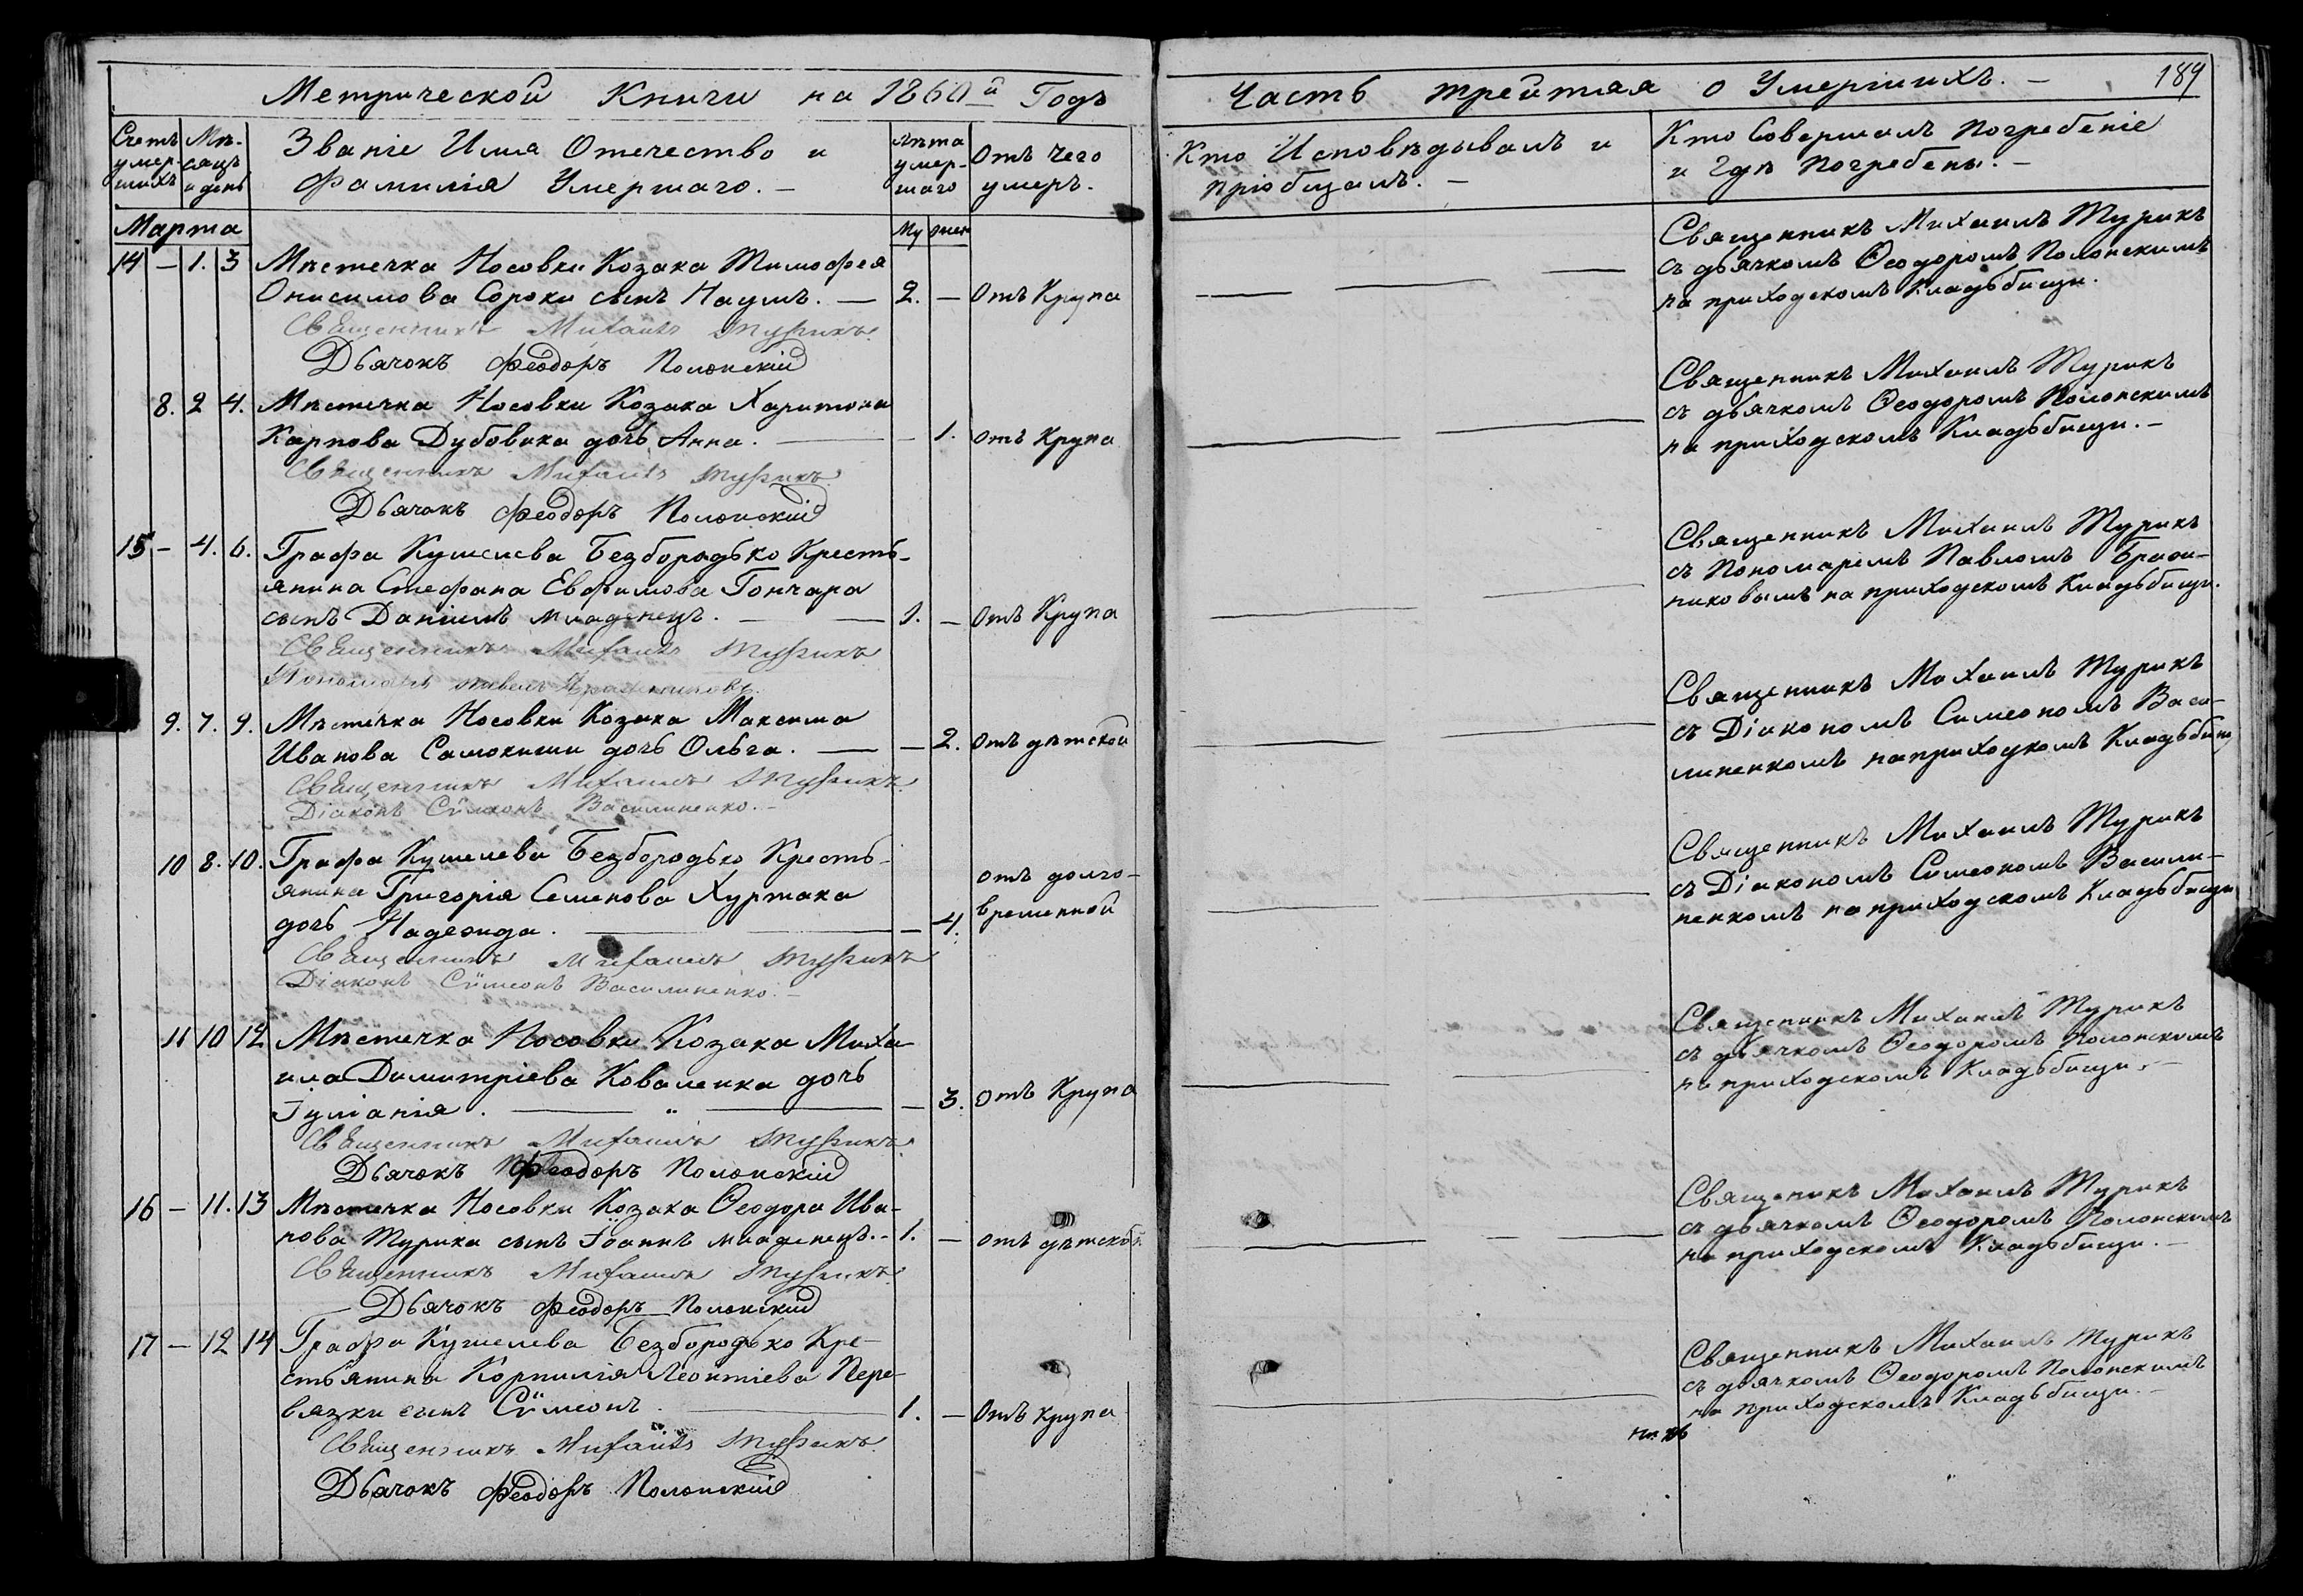 Метрической Книги на 1860й Годъ
Часть трейтая о Умершихъ. —
189
Счетъ умер-шихъ
Мѣ-сяцъ и день
Званіе Имя Отечество и
Фамилія Умершаго. —
Лѣта умер-шаго
Отъ чего
умеръ.
Кто Исповѣдывалъ и
пріобщалъ. —
Кто Совершалъ Погребеніе
и гдѣ Погребены. —
Марта
Му жен
14 — 1. 3 Мѣстечка Носовки Козака Тимофея
Онисимова Сороки сынъ Наумъ. — 2. — Отъ Крупа
Священникъ Михаилъ Турикъ
Дьячокъ Феодоръ Полонскій
Священникъ Михаилъ Турикъ
съ дьячкомъ Ѳеодоромъ Полонскимъ
на приходскомъ Кладьбищи.
8. 2 4. Мѣстечка Носовки Козака Харитона
Карпова Дубовика дочь Анна. — — 1. отъ Крупа
Священникъ Михаилъ Турикъ
Дьячокъ Феодоръ Полонскій
Священникъ Михаилъ Турикъ
съ дьячкомъ Ѳеодоромъ Полонскимъ
на приходскомъ Кладьбищи. —
15 — 4. 6. Графа Кушелева Безбородько Кресть-
янина Стефана Евфимова Гончара
сынъ Даніилъ младенецъ. — — 1. — Отъ Крупа
Священникъ Михаилъ Турикъ
Пономарь Павелъ
Священникъ Михаилъ Турикъ
съ Пономаремъ Павломъ
на приходскомъ Кладьбищи.
9. 7. 9. Мѣстечка Носовки Козака Максима
Иванова Самокиши дочь Ольга. — — 2. Отъ дѣтской
Священникъ Михаилъ Турикъ
Діаконъ Сѵмеонъ Василиненко. —
Священникъ Михаилъ Турикъ
съ Діакономъ Симеономъ Васи-
линенкомъ на приходкомъ Кладьбищи
10 8. 10. Графа Кушелева Безбородько Кресть-
янина Григорія Семенова Хуртака
дочь Надежда. — — 4. отъ долго-
временной
Священникъ Михаилъ Турикъ
Діаконъ Сѵмеонъ Василиненко. —
Священникъ Михаилъ Турикъ
съ Діакономъ Симеономъ Васили-
ненкомъ на приходскомъ Кладьбищи
11 10 12 Мѣстечка Носовки Козака Миха-
ила Димитріева Коваленка дочь
Іуліанія. — „ — — 3. Отъ Крупа
Священникъ Михаилъ Турикъ
Дьячокъ Феодоръ Полонскій
Священникъ Михаилъ Турикъ
съ дьячкомъ Ѳеодоромъ Полонскимъ
на приходскомъ Кладьбищи. —
16 — 11. 13 Мѣстечка Носовки Козака Ѳеодора Ива-
нова Турика сынъ Іоаннъ младенецъ. — 1. — отъ дѣтской
Священникъ Михаилъ Турикъ
Дьячокъ Феодоръ Полонскій
Священикъ Михаилъ Турикъ
съ дьячкомъ Ѳеодоромъ Полонскимъ
на приходскомъ Кладьбищи. —
17 — 12 14 Графа Кушелева Безбородько Кре-
стьянина Корнилія Леонтіева Пере-
вязки сынъ Сѵмеонъ. — 1. — Отъ крупа
Священникъ Михаилъ Турикъ
Дьячокъ Феодоръ Полонскій
Священникъ Михаилъ Турикъ
съ дьячкомъ Ѳеодоромъ Полонскимъ
на приходскомъ Кладьбищи. —